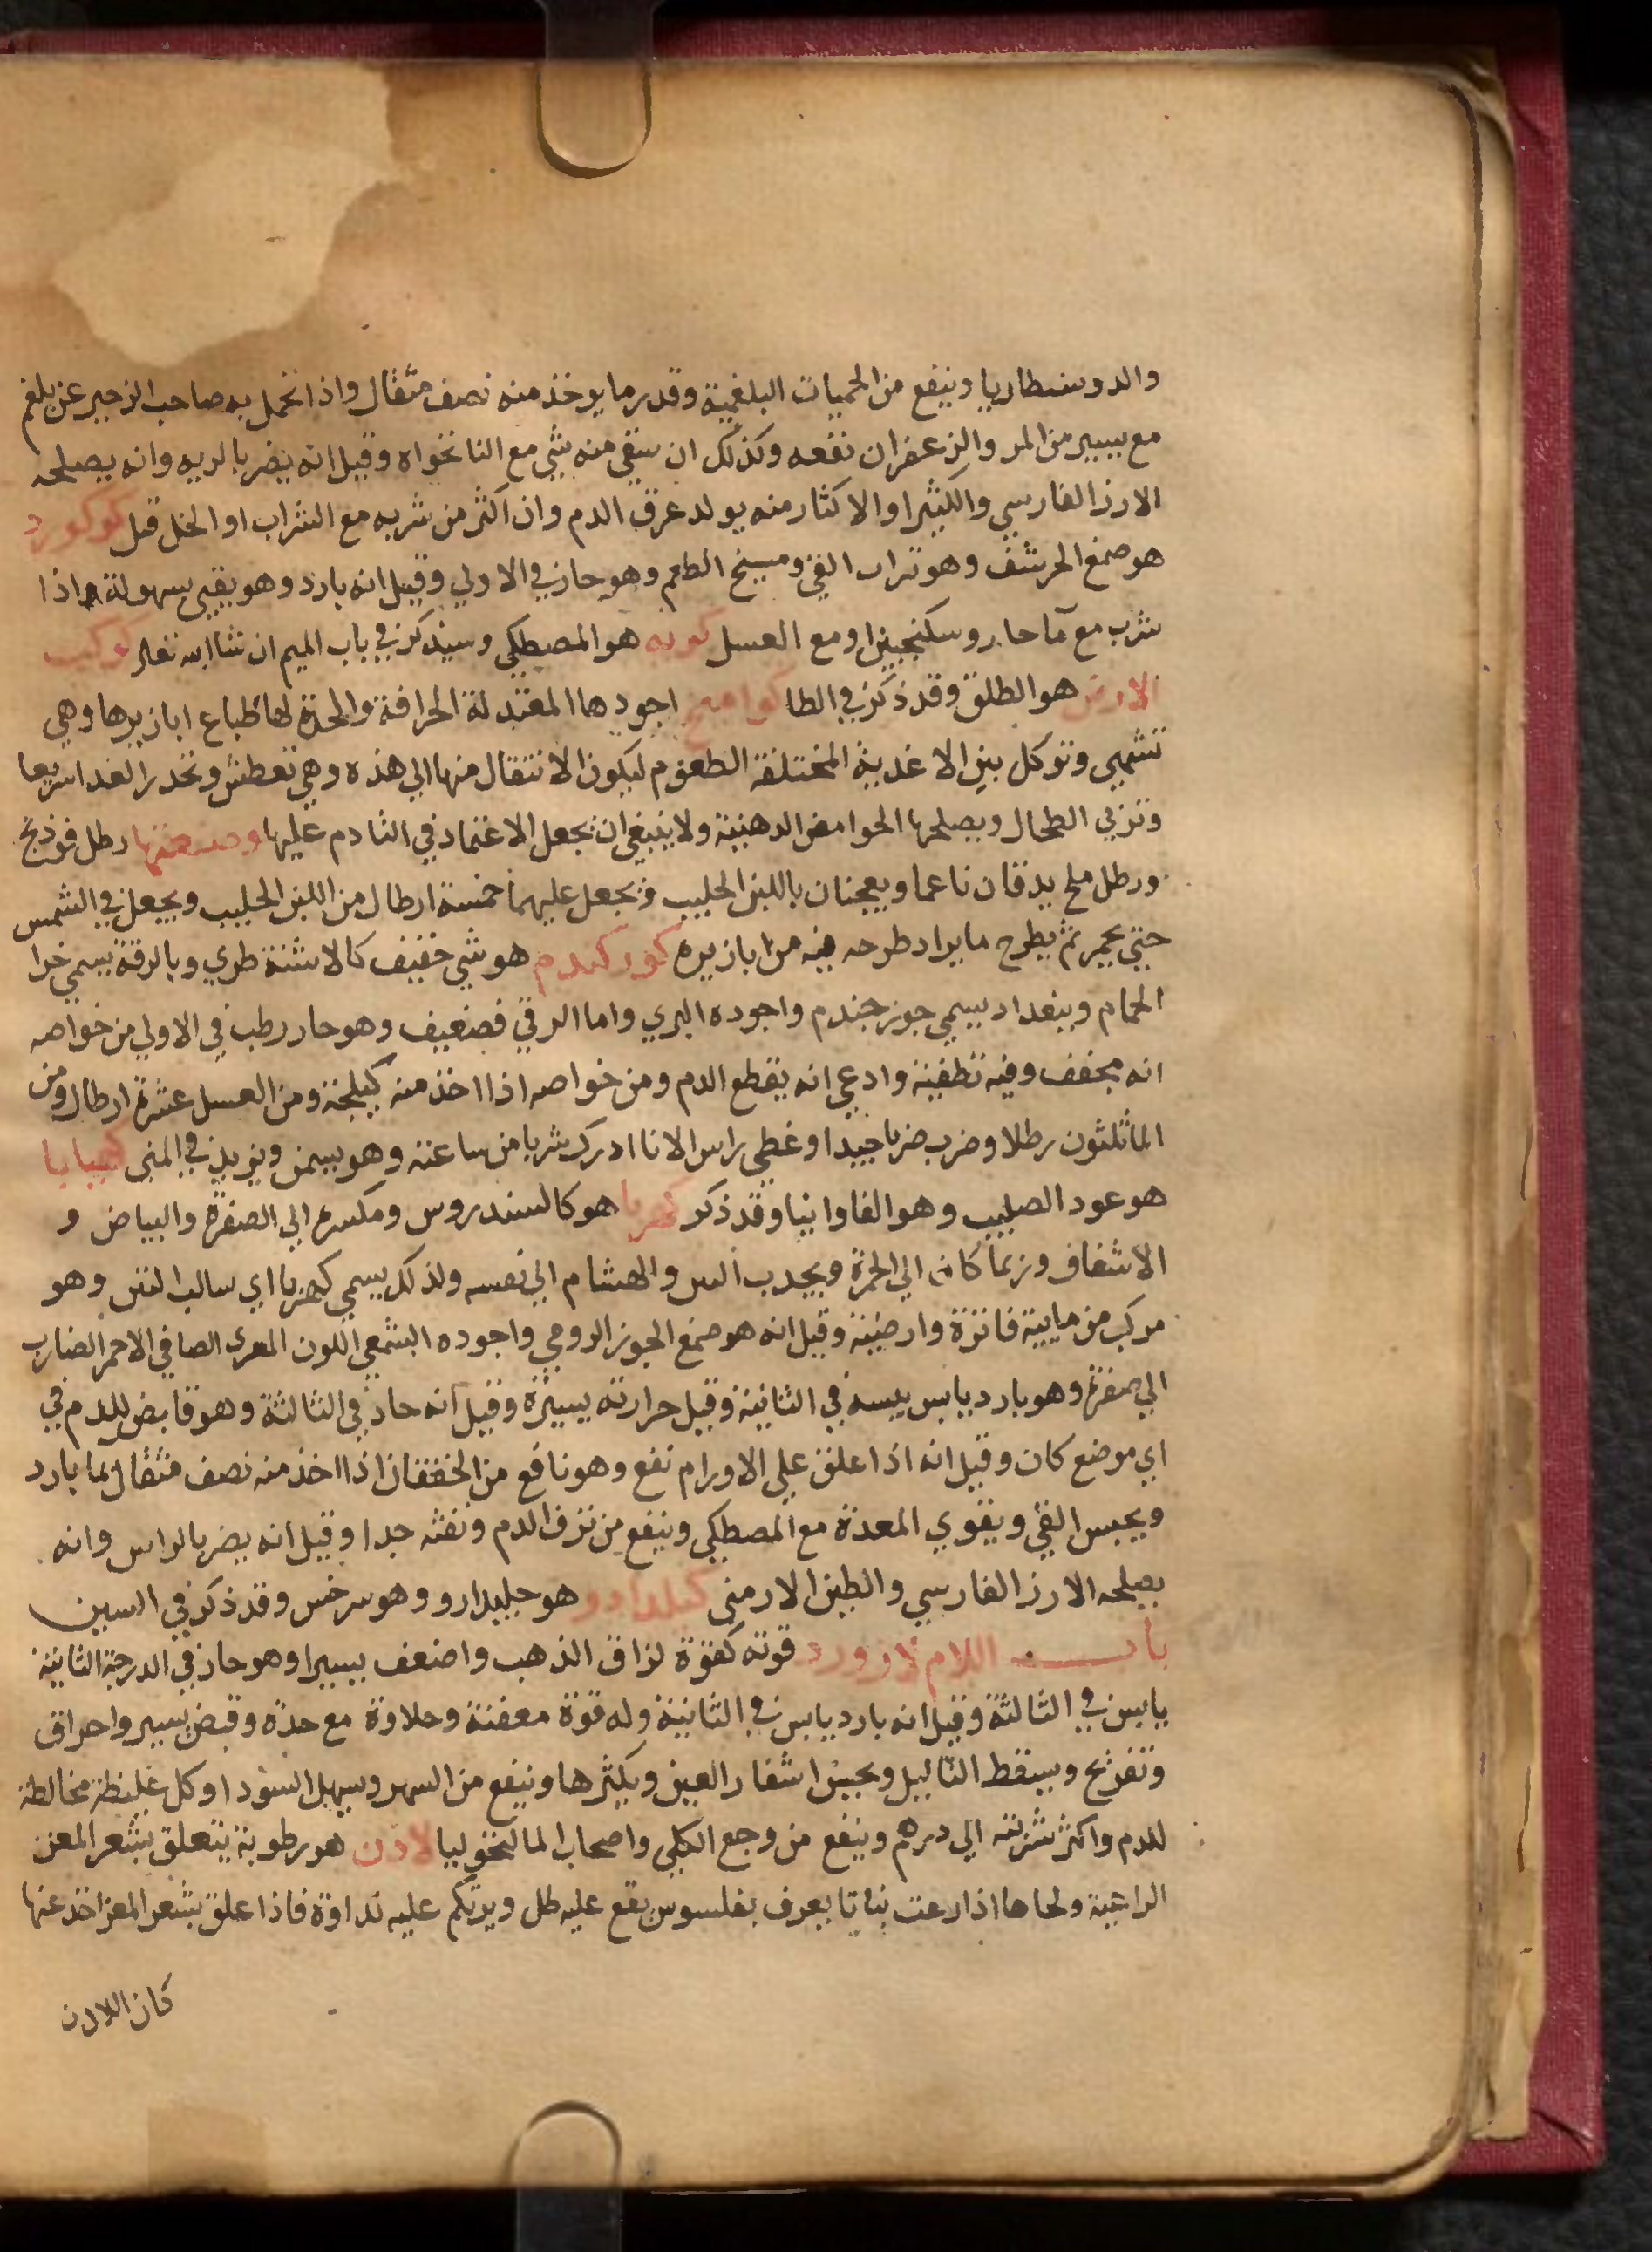 والدوسنطاريا وينفع من الحميات البلغمية وقدر ما يوخذ منه نصف مثقال واذا تحمل به صاحب الزحير عن بلغم
مع يسير من المر والزعفران نفعه وكذلك ان سقي منه شي مع النانخواه وقيل انه يضر بالريه وانه يصلحه
الارز الفارسي والكثيرا والاكثار منه يولد عرق الدم وان اكثر من شربه مع الشراب او الخل قتل كوكورد
هو صمغ الحرشف وهو تراب القي ومسيخ الطعم وهو حار في الاولي وقيل انه بارد وهو يقيي بسهولة اذا
شرب مع مآ حار وسكنجبين او مع العسل كيه هو المصطكي وسيذكر في باب الميم ان شا الله تعالي كوكب
الارض هو الطلق وقد ذكر في الطا كوامخ اجودها المعتدلة الحرافة والحدة لها طباع ابازيرها وهي
تشهي وتوكل بين الاغذية المختلفة الطعوم ليكون الانتقال منها الي هذه وهي تعطش وتحدر الغدا سريعا
وتربي الطحال ويصلحها الحوامض الدهنية ولا ينبغي ان يجعل الاعتماد في التادم عليها وصنعتها رطل فوذنج
ورطل ملح يدقان ناعما ويعجنان باللبن الحليب ويجعل عليهما خمسة ارطال من اللبن الحليب ويجعل في الشمس
حتي يحمر ثم يطرح ما يراد طرحه فيه من ابازيره كوركندم هو شي خفيف كالاشنة طري وبالرقة يسمي خرا
الحمام وببغداد يسمي جوز جندم واجوده البري واما الرقي فضعيف وهو حار رطب في الاولي من خواصه
انه مجفف وفيه تطفية وادعي انه يقطع الدم ومن خواصه اذا اخذ منه كيلجة ومن العسل عشرة ارطال ومن
الما ثلثون رطلا وضرب ضربا جيدا وغطي راس الانا ادرك شربا من ساعته وهو يسمن ويزيد في المني كهيانا
هو عود الصليب وهو الفاوانيا وقد ذكر كهربا هو كالسندروس ومكسره الي الصفرة والبياض و
الاشفاف وربما كان الي الحمرة ويجدب التبن والهشام الي نفسه ولذلك يسمي كهربا اي سالب التبن وهو
مركب من مايية فاترة وارضية وقيل انه هو صمغ الجوز الرومي واجوده الشمعي اللون المعرى الصافي الاحمر الضارب
الي صفرة وهو بارد يابس يبسه في الثانية وقيل حرارته يسيرة وقيل انه حار في الثالثة وهو قابض للدم في
اي موضع كان وقيل انه اذا علق علي الاورام نفع وهو نافع من الخفقان اذا اخذ منه نصف مثقال بما بارد
ويحبس القي ويقوي المعدة مع المصطكي وينفع من نزف الدم ونفثه جدا وقيل انه يضر بالراس وانه
يصلحه الارز الفارسي والطين الارمني كيلدارو هو جيلدارو وهو سرخس وقد ذكر في السين
باب اللام لازورد قوته كقوة لزاق الذهب واضعف يسيرا وهو حار في الدرجة الثانية
يابس في الثالثة وقيل انه بارد يابس في الثانية وله قوة معفنة وحلاوة مع حدة وقبض يسير واحراق
وتقرح ويسقط الثاليل ويحسن اشفار العين ويكثرها وينفع من السهر ويسهل السودا وكل غليظة مخالطة
للدم واكثر شربته الي درهم وينفع من وجع الكلي واصحاب المالنخوليا لادن هو رطوبة يتعلق بشعر المعز
الراعية ولحاها اذا رعت نباتا يعرف بفلسوس يقع عليه طل ويرتكم عليه نداوة فاذا علق بشعر المعز اخذ عنها
كان اللادن